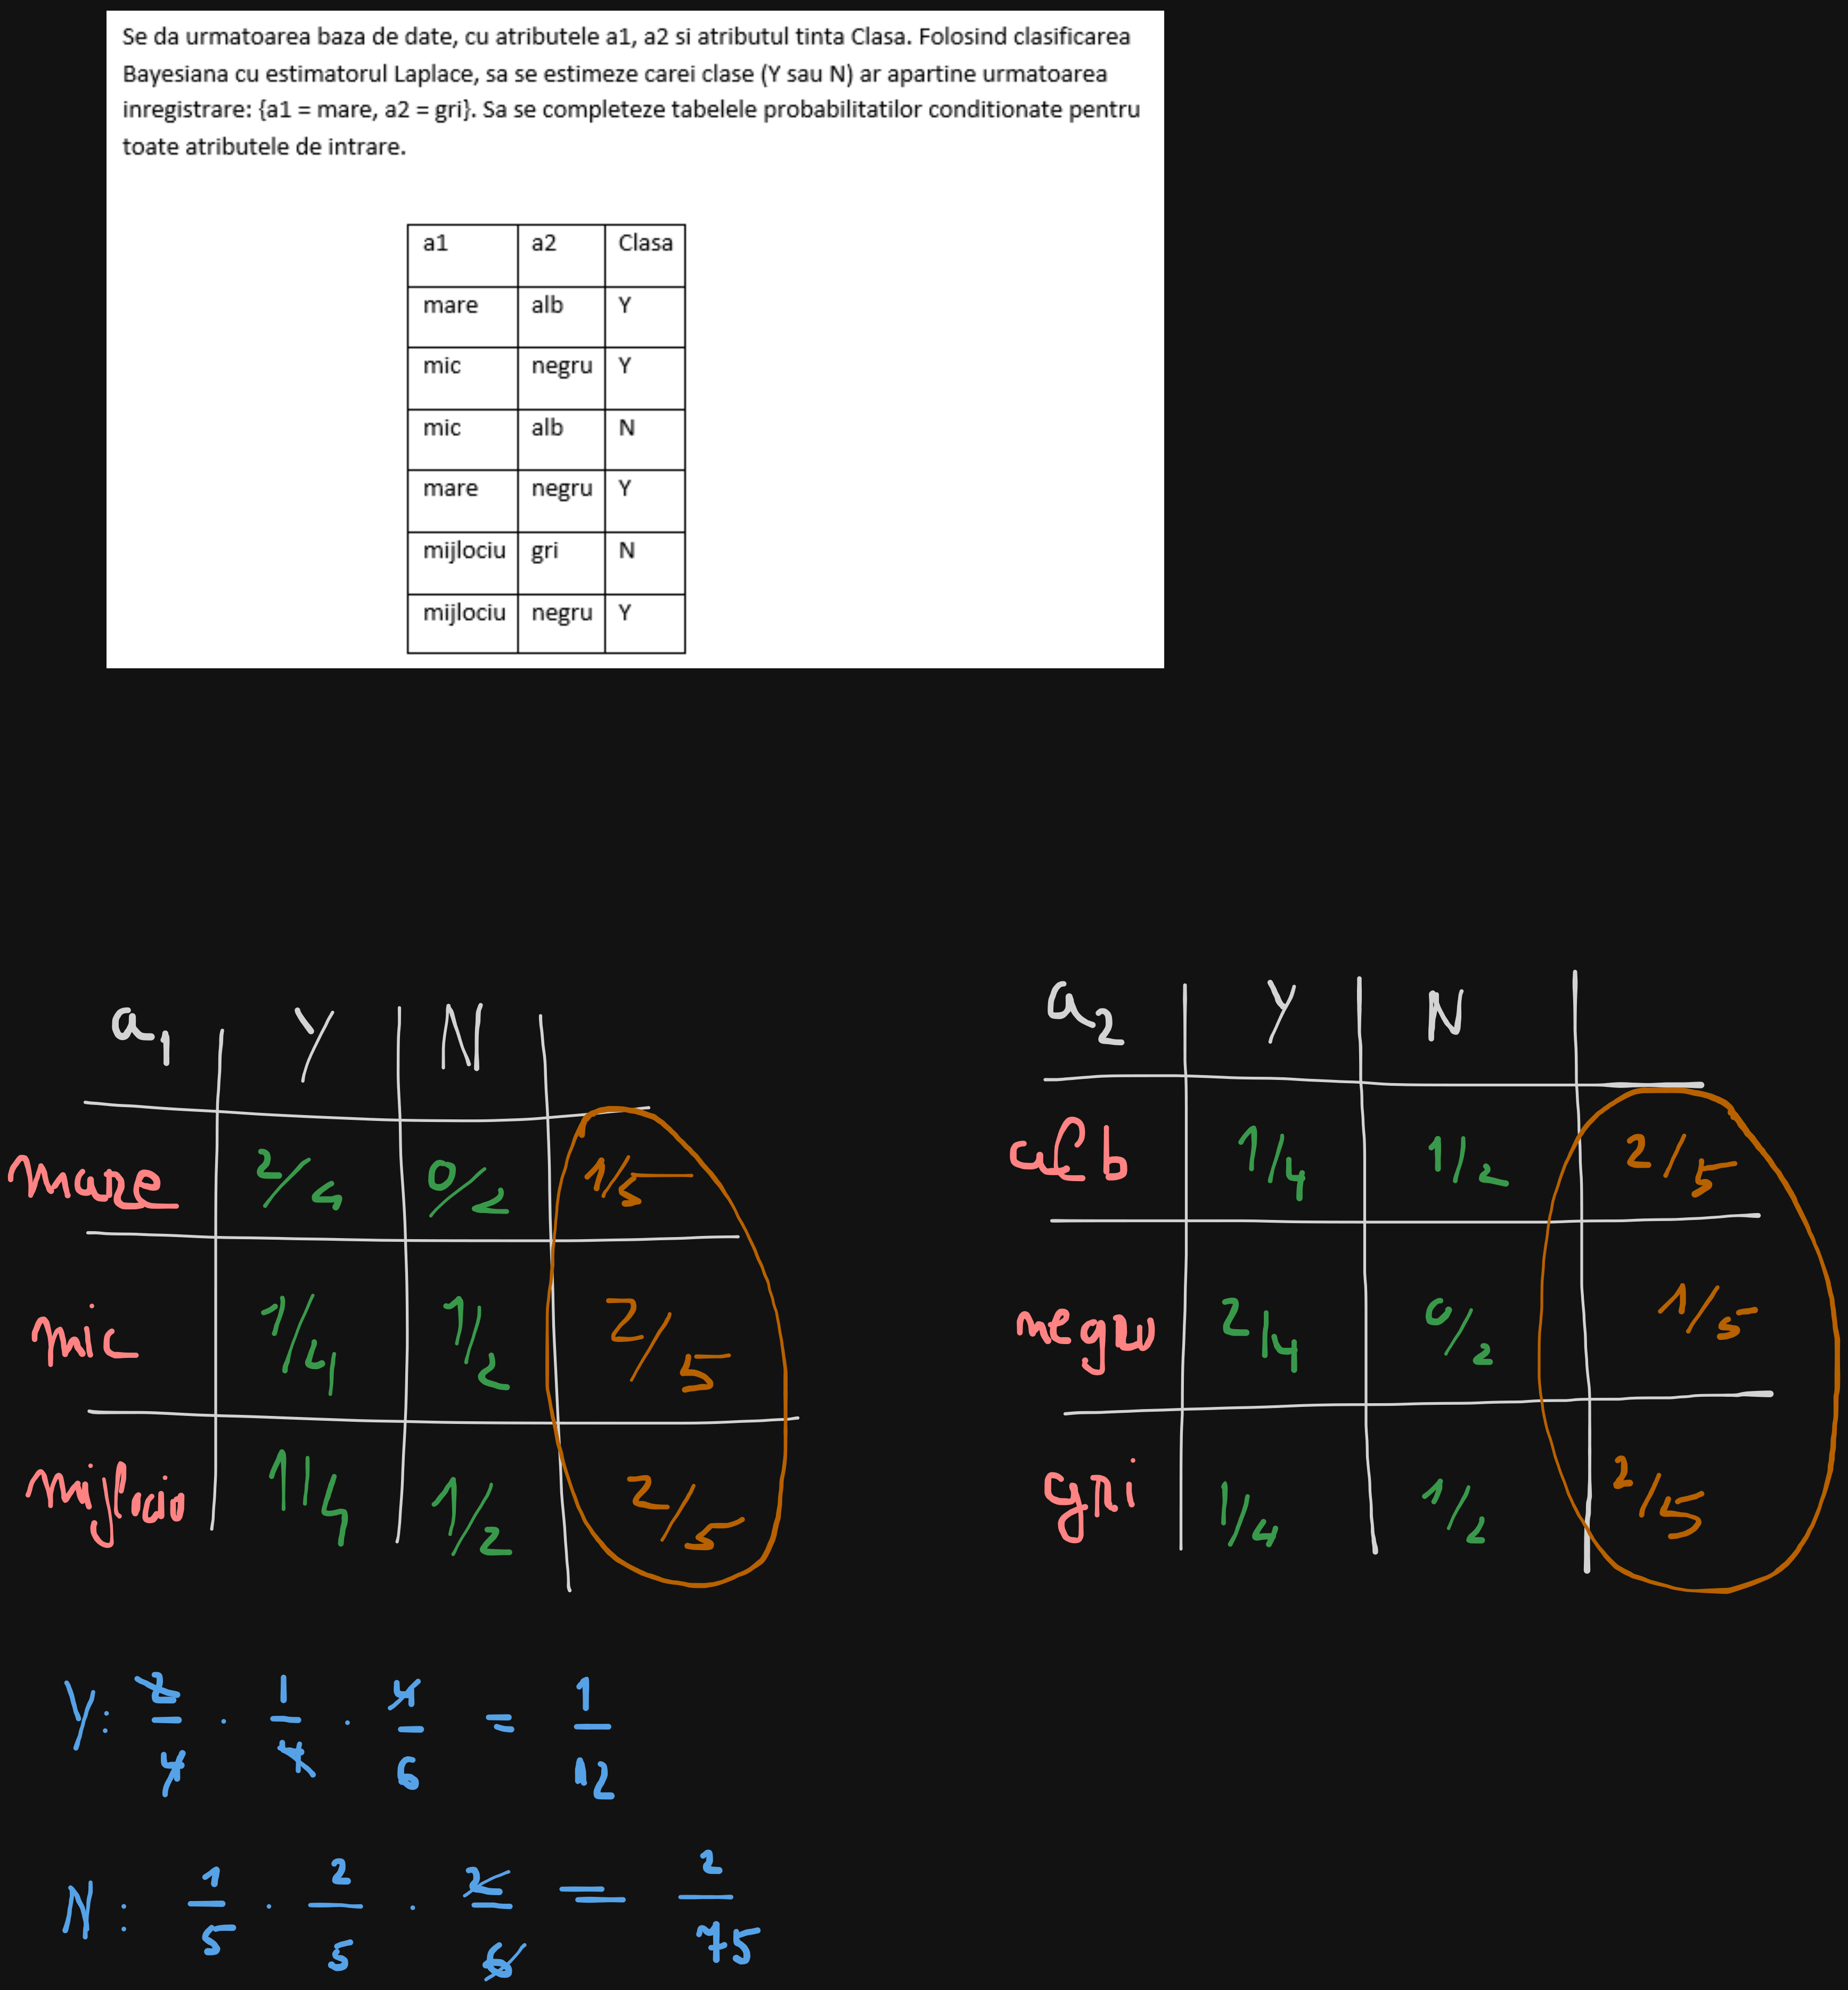 Se da urmatoarea baza de date, cu atributele a1, a2 si atributul tinta Clasa. Folosind clasificarea
Bayesiana cu estimatorul Laplace, sa se estimeze carei clase (Y sau N) ar apartine urmatoarea
inregistrare: {a1 = mare, a2 = gri}. Sa se completeze tabelele probabilitatilor conditionate pentru
toate atributele de intrare.
a1 a2 Clasa
mare alb Y
mic negru Y
mic alb N
mare negru Y
mijlociu gri N
mijlociu negru Y
a1 Y N
mare 2/4 0/2 1/5
mic 1/4 1/2 2/5
mijlociu 1/4 1/2 2/5
a2 Y N
alb 1/4 1/2 2/5
negru 2/4 0/2 1/5
gri 1/4 1/2 2/5
Y: 2/4 · 1/4 · 4/6 = 1/12
N: 1/5 · 2/5 · 2/6 = 2/75